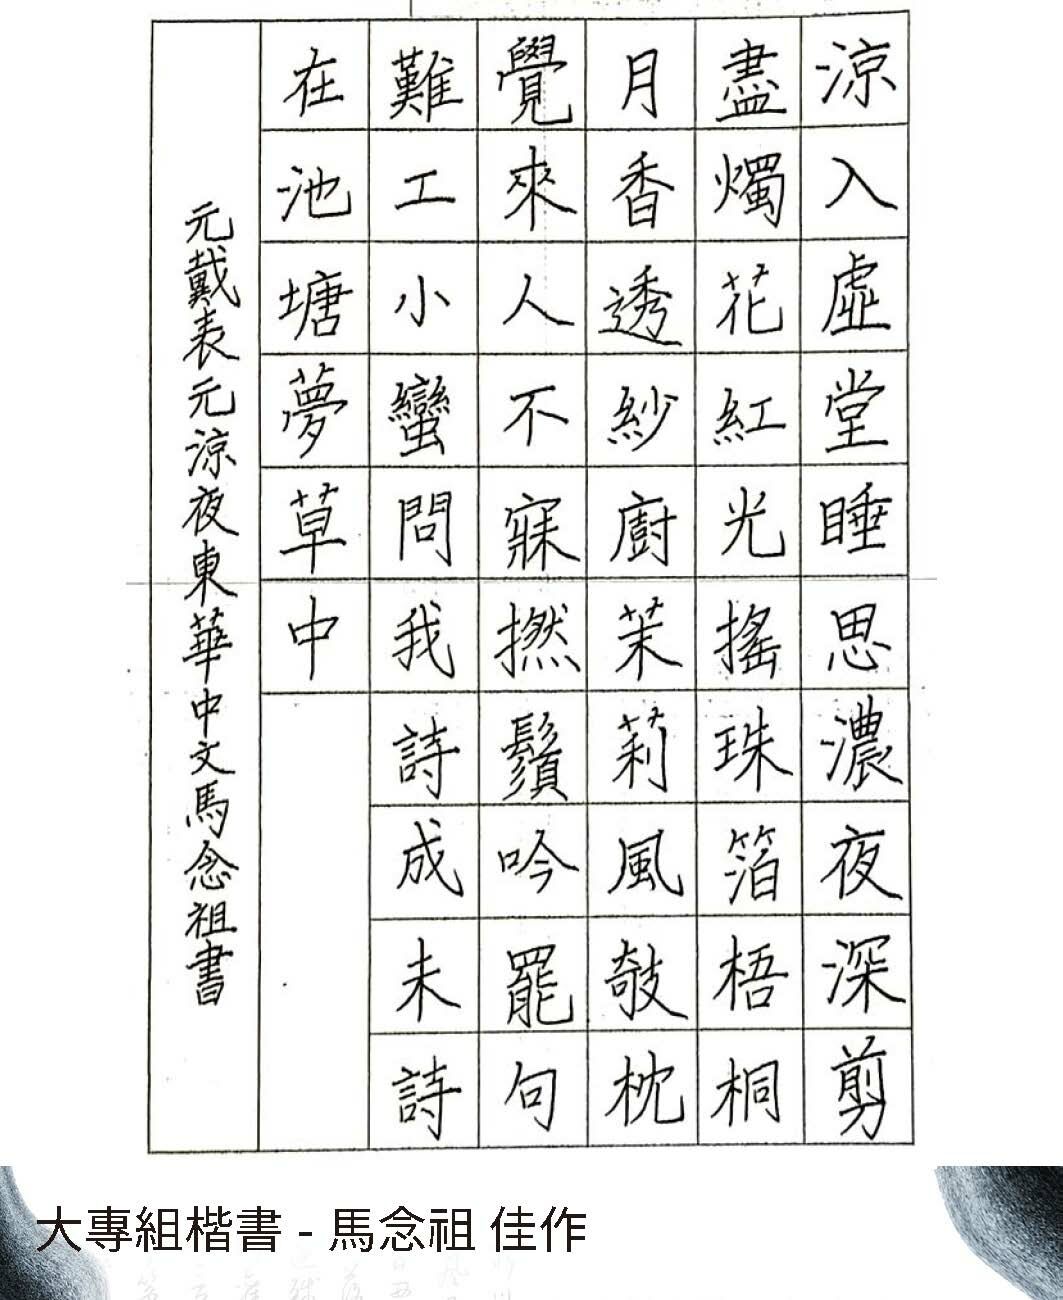 涼入虛堂睡思濃夜深剪
盡燭花紅光搖珠箔梧桐
月香透紗廚茉莉風敧枕
覺來人不寐撚鬚吟罷句
難工小蠻問我詩成未詩
在池塘夢草中
元戴表元涼夜東華中文馬念祖書
大專組楷書 - 馬念祖 佳作